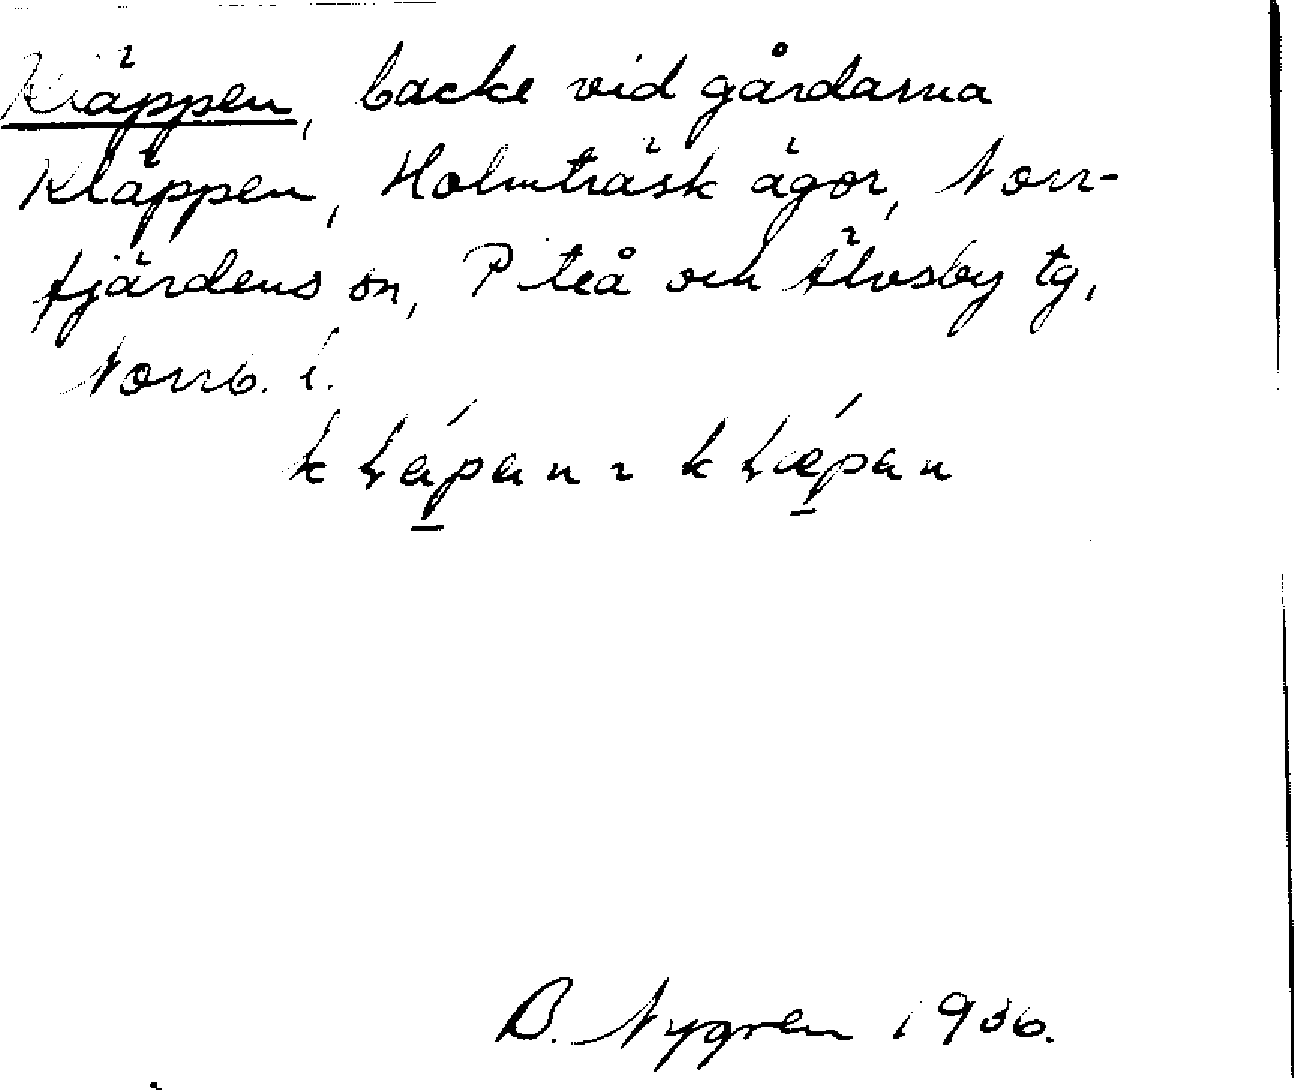 Kläppen, backe vid gårdarna
Kläppen, Holmträsk ägor, Norr-
fjärdens sn, Piteå och Älvsby tg,
Norrb. l.
B. Nygren 1936.